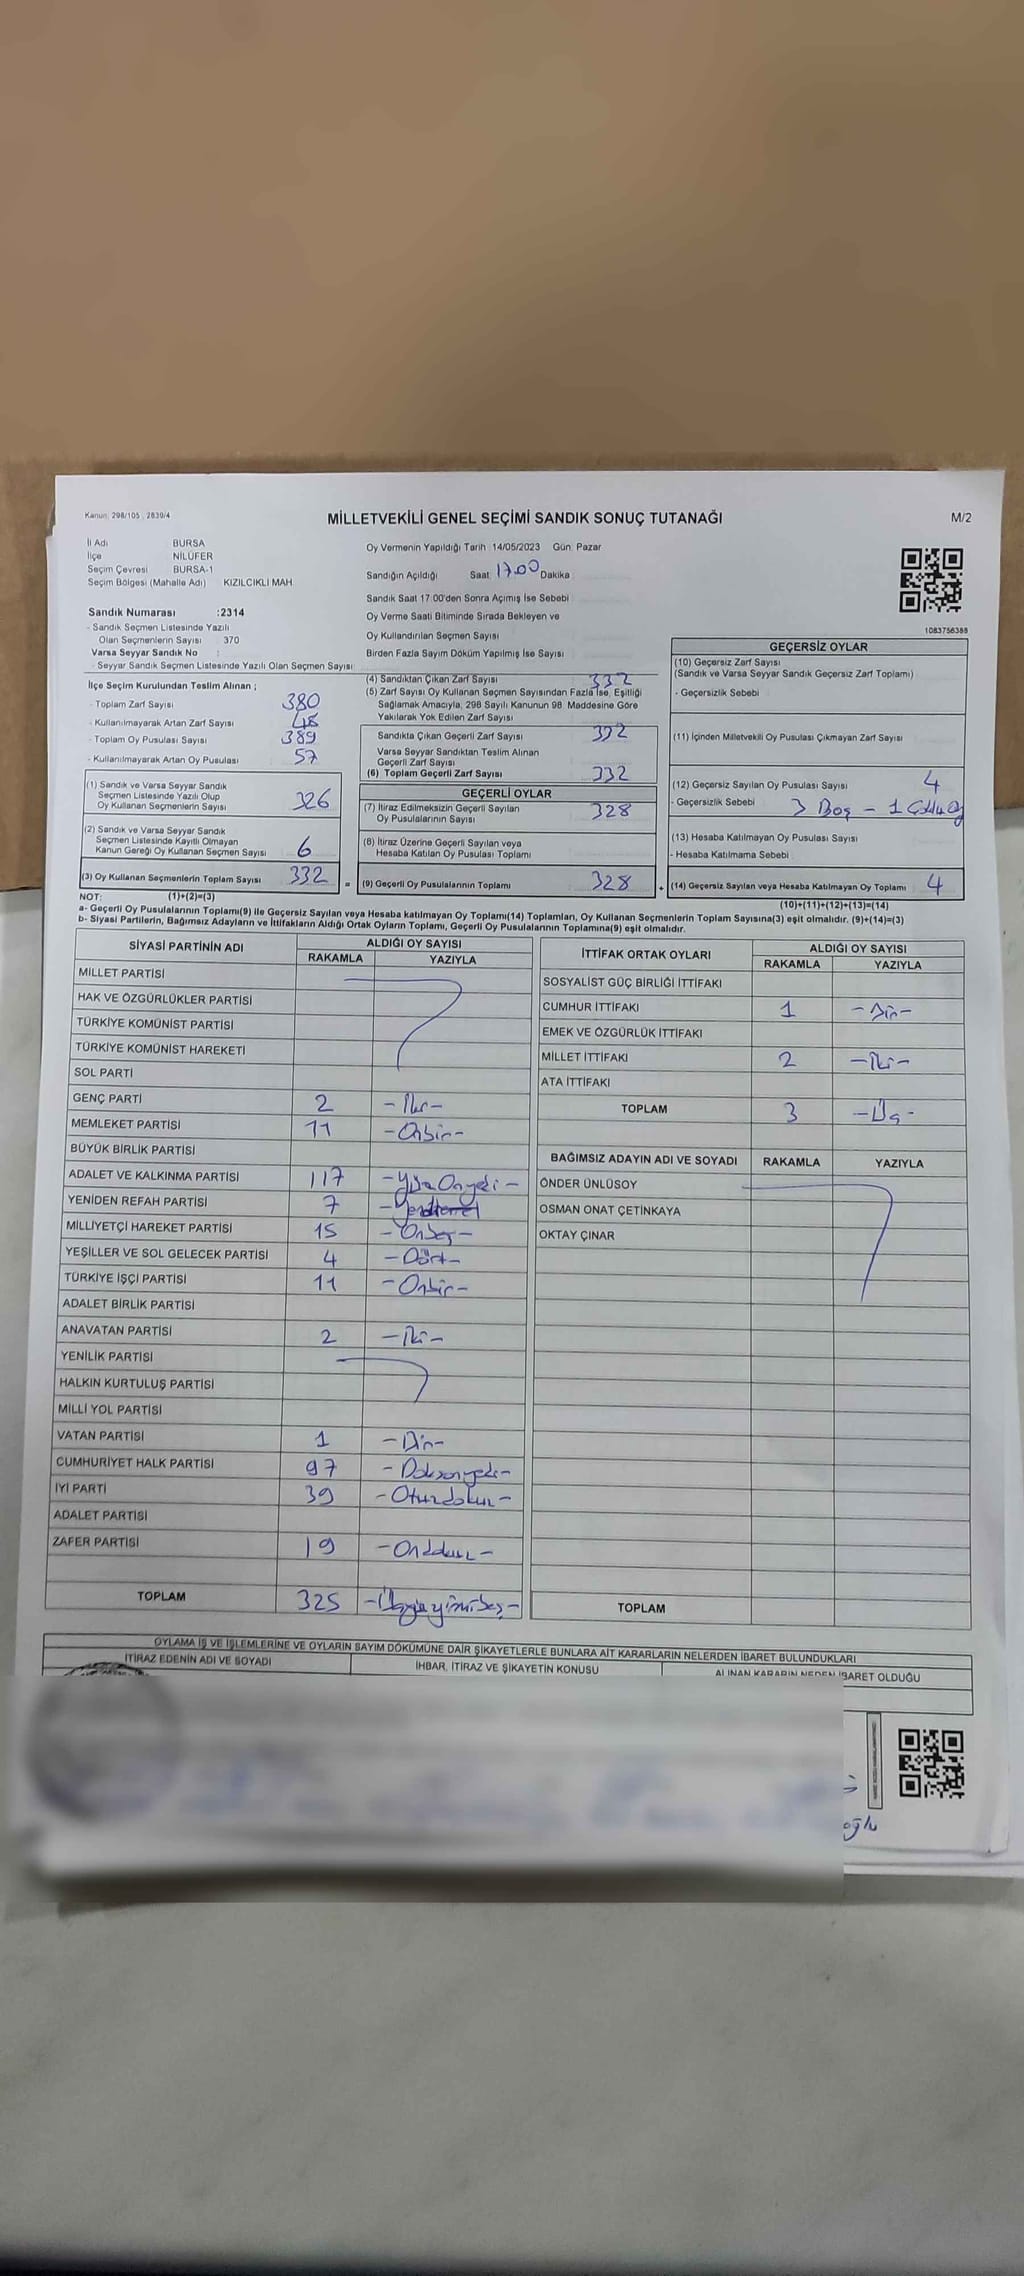 Kanun: 298/105 , 2839/4
MİLLETVEKİLİ GENEL SEÇİMİ SANDIK SONUÇ TUTANAĞI
M/2
İl Adı BURSA
İlçe NİLÜFER
Seçim Çevresi BURSA-1
Seçim Bölgesi (Mahalle Adı) KIZILCIKLI MAH.
Sandık Numarası :2314
- Sandık Seçmen Listesinde Yazılı
Olan Seçmenlerin Sayısı 370
Varsa Seyyar Sandık No :
- Seyyar Sandık Seçmen Listesinde Yazılı Olan Seçmen Sayısı:
Oy Vermenin Yapıldığı Tarih :14/05/2023 Gün: Pazar
Sandığın Açıldığı Saat: 17.00 Dakika :
Sandık Saat 17:00'den Sonra Açımış İse Sebebi
Oy Verme Saati Bitiminde Sırada Bekleyen ve
Oy Kullandırılan Seçmen Sayısı
Birden Fazla Sayım Döküm Yapılmış İse Sayısı
1083756388
İlçe Seçim Kurulundan Teslim Alınan ;
- Toplam Zarf Sayısı 380
- Kullanılmayarak Artan Zarf Sayısı 48
- Toplam Oy Pusulası Sayısı 389
- Kullanılmayarak Artan Oy Pusulası 57
(1) Sandık ve Varsa Seyyar Sandık
Seçmen Listesinde Yazılı Olup
Oy Kullanan Seçmenlerin Sayısı 326
(2) Sandık ve Varsa Seyyar Sandık
Seçmen Listesinde Kayıtlı Olmayan
Kanun Gereği Oy Kullanan Seçmen Sayısı 6
(3) Oy Kullanan Seçmenlerin Toplam Sayısı 332 =
(1)+(2)=(3)
(4) Sandıktan Çıkan Zarf Sayısı 332
(5) Zarf Sayısı Oy Kullanan Seçmen Sayısından Fazla İse, Eşitliği
Sağlamak Amacıyla, 298 Sayılı Kanunun 98. Maddesine Göre
Yakılarak Yok Edilen Zarf Sayısı
Sandıkta Çıkan Geçerli Zarf Sayısı 332
Varsa Seyyar Sandıktan Teslim Alınan
Geçerli Zarf Sayısı
(6) Toplam Geçerli Zarf Sayısı 332
GEÇERLİ OYLAR
(7) İtiraz Edilmeksizin Geçerli Sayılan
Oy Pusulalarının Sayısı 328
(8) İtiraz Üzerine Geçerli Sayılan veya
Hesaba Katılan Oy Pusulası Toplamı
(9) Geçerli Oy Pusulalarının Toplamı 328 +
GEÇERSİZ OYLAR
(10) Geçersiz Zarf Sayısı
(Sandık ve Varsa Seyyar Sandık Geçersiz Zarf Toplamı)
- Geçersizlik Sebebi
(11) İçinden Milletvekili Oy Pusulası Çıkmayan Zarf Sayısı
(12) Geçersiz Sayılan Oy Pusulası Sayısı 4
- Geçersizlik Sebebi 3 Boş - 1
(13) Hesaba Katılmayan Oy Pusulası Sayısı
- Hesaba Katılmama Sebebi
(14) Geçersiz Sayılan veya Hesaba Katılmayan Oy Toplamı 4
(10)+(11)+(12)+(13)=(14)
NOT:
a- Geçerli Oy Pusulalarının Toplamı(9) ile Geçersiz Sayılan veya Hesaba katılmayan Oy Toplamı(14) Toplamları, Oy Kullanan Seçmenlerin Toplam Sayısına(3) eşit olmalıdır. (9)+(14)=(3)
b- Siyasi Partilerin, Bağımsız Adayların ve İttifakların Aldığı Ortak Oyların Toplamı, Geçerli Oy Pusulalarının Toplamına(9) eşit olmalıdır.
SİYASİ PARTİNİN ADI ALDIĞI OY SAYISI
RAKAMLA YAZIYLA
MİLLET PARTİSİ
HAK VE ÖZGÜRLÜKLER PARTİSİ
TÜRKİYE KOMÜNİST PARTİSİ
TÜRKİYE KOMÜNİST HAREKETİ
SOL PARTİ
GENÇ PARTİ 2 - İki -
MEMLEKET PARTİSİ 11 - Onbir -
BÜYÜK BİRLİK PARTİSİ
ADALET VE KALKINMA PARTİSİ 117 - Yüz Onyedi -
YENİDEN REFAH PARTİSİ 7
MİLLİYETÇİ HAREKET PARTİSİ 15 - Onbeş -
YEŞİLLER VE SOL GELECEK PARTİSİ 4 - Dört -
TÜRKİYE İŞÇİ PARTİSİ 11 - Onbir -
ADALET BİRLİK PARTİSİ
ANAVATAN PARTİSİ 2 - İki -
YENİLİK PARTİSİ
HALKIN KURTULUŞ PARTİSİ
MİLLİ YOL PARTİSİ
VATAN PARTİSİ 1 - Bir -
CUMHURİYET HALK PARTİSİ 97 - Doksanyedi -
İYİ PARTİ 39 - Otuzdokuz -
ADALET PARTİSİ
ZAFER PARTİSİ 19 - Ondokuz -
TOPLAM 325 - Üçyüzyirmibeş -
İTTİFAK ORTAK OYLARI ALDIĞI OY SAYISI
RAKAMLA YAZIYLA
SOSYALİST GÜÇ BİRLİĞİ İTTİFAKI
CUMHUR İTTİFAKI 1 - Bir -
EMEK VE ÖZGÜRLÜK İTTİFAKI
MİLLET İTTİFAKI 2 - İki -
ATA İTTİFAKI
TOPLAM 3 - Üç -
BAĞIMSIZ ADAYIN ADI VE SOYADI RAKAMLA YAZIYLA
ÖNDER ÜNLÜSOY
OSMAN ONAT ÇETİNKAYA
OKTAY ÇINAR
TOPLAM
OYLAMA İŞ VE İŞLEMLERİNE VE OYLARIN SAYIM DÖKÜMÜNE DAİR ŞİKAYETLERLE BUNLARA AİT KARARLARIN NELERDEN İBARET BULUNDUKLARI
İTİRAZ EDENİN ADI VE SOYADI İHBAR, İTİRAZ VE ŞİKAYETİN KONUSU ALINAN KARARIN NEDEN İBARET OLDUĞU